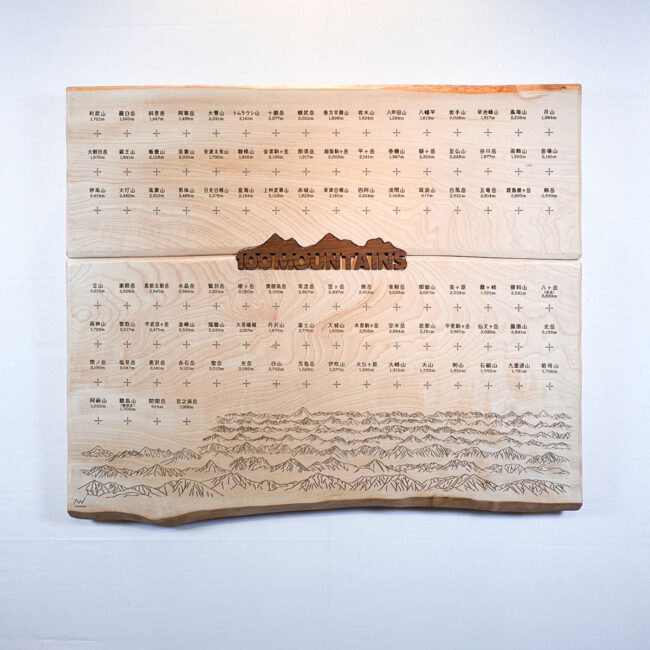 利尻山 羅臼岳 斜里岳 阿寒岳 大雪山 トムラウシ山 十勝岳 幌尻岳 後方羊蹄山 岩木山 八甲田山 八幡平 岩手山 早池峰山 鳥海山 月山
1,721m 1,547m 1,499m 2,291m 2,141m 2,077m 1,898m 1,625m 1,613m 2,038m 1,917m 2,236m 1,984m
大朝日岳 蔵王山 飯豊山 吾妻山 安達太良山 磐梯山 会津駒ヶ岳 那須岳 越後駒ヶ岳 平ヶ岳 巻機山 燧ヶ岳 至仏山 谷川岳 雨飾山 苗場山
1,841m 2,035m 1,700m 1,816m 2,003m 2,141m 1,967m 2,356m 2,228m 1,977m 1,963m 2,145m
妙高山 火打山 高妻山 男体山 日光白根山 皇海山 上州武尊山 赤城山 草津白根山 四阿山 浅間山 筑波山 白馬岳 五竜岳 鹿島槍ヶ岳 剱岳
2,454m 2,462m 2,353m 2,486m 2,578m 2,144m 2,158m 1,828m 2,354m 2,568m 877m 2,932m 2,814m 2,889m
100MOUNTAINS
立山 薬師岳 黒部五郎岳 水晶岳 鷲羽岳 槍ヶ岳 奥穂高岳 常念岳 笠ヶ岳 焼岳 乗鞍岳 御嶽山 美ヶ原 霧ヶ峰 蓼科山 八ヶ岳
(赤岳)
3,015m 2,926m 2,840m 2,986m 2,924m 3,180m 3,190m 2,857m 3,026m 3,067m 2,034m 1,925m 2,531m 2,899m
両神山 雲取山 甲武信ヶ岳 金峰山 瑞牆山 大菩薩嶺 丹沢山 富士山 天城山 木曽駒ヶ岳 空木岳 恵那山 甲斐駒ヶ岳 仙丈ヶ岳 鳳凰山 北岳
1,723m 2,017m 2,475m 2,599m 2,230m 2,057m 3,776m 2,956m 2,864m 2,191m 2,967m 3,033m 2,841m 3,193m
間ノ岳 塩見岳 悪沢岳 赤石岳 聖岳 光岳 白山 荒島岳 伊吹山 大台ヶ原 大峰山 大山 剣山 石鎚山 九重連山 祖母山
3,190m 3,047m 3,141m 3,121m 3,013m 2,702m 1,523m 1,377m 1,695m 1,915m 1,729m 1,955m 1,982m 1,791m 1,756m
阿蘇山 霧島山 開聞岳 宮之浦岳
1,592m 1,700m 924m 1,936m